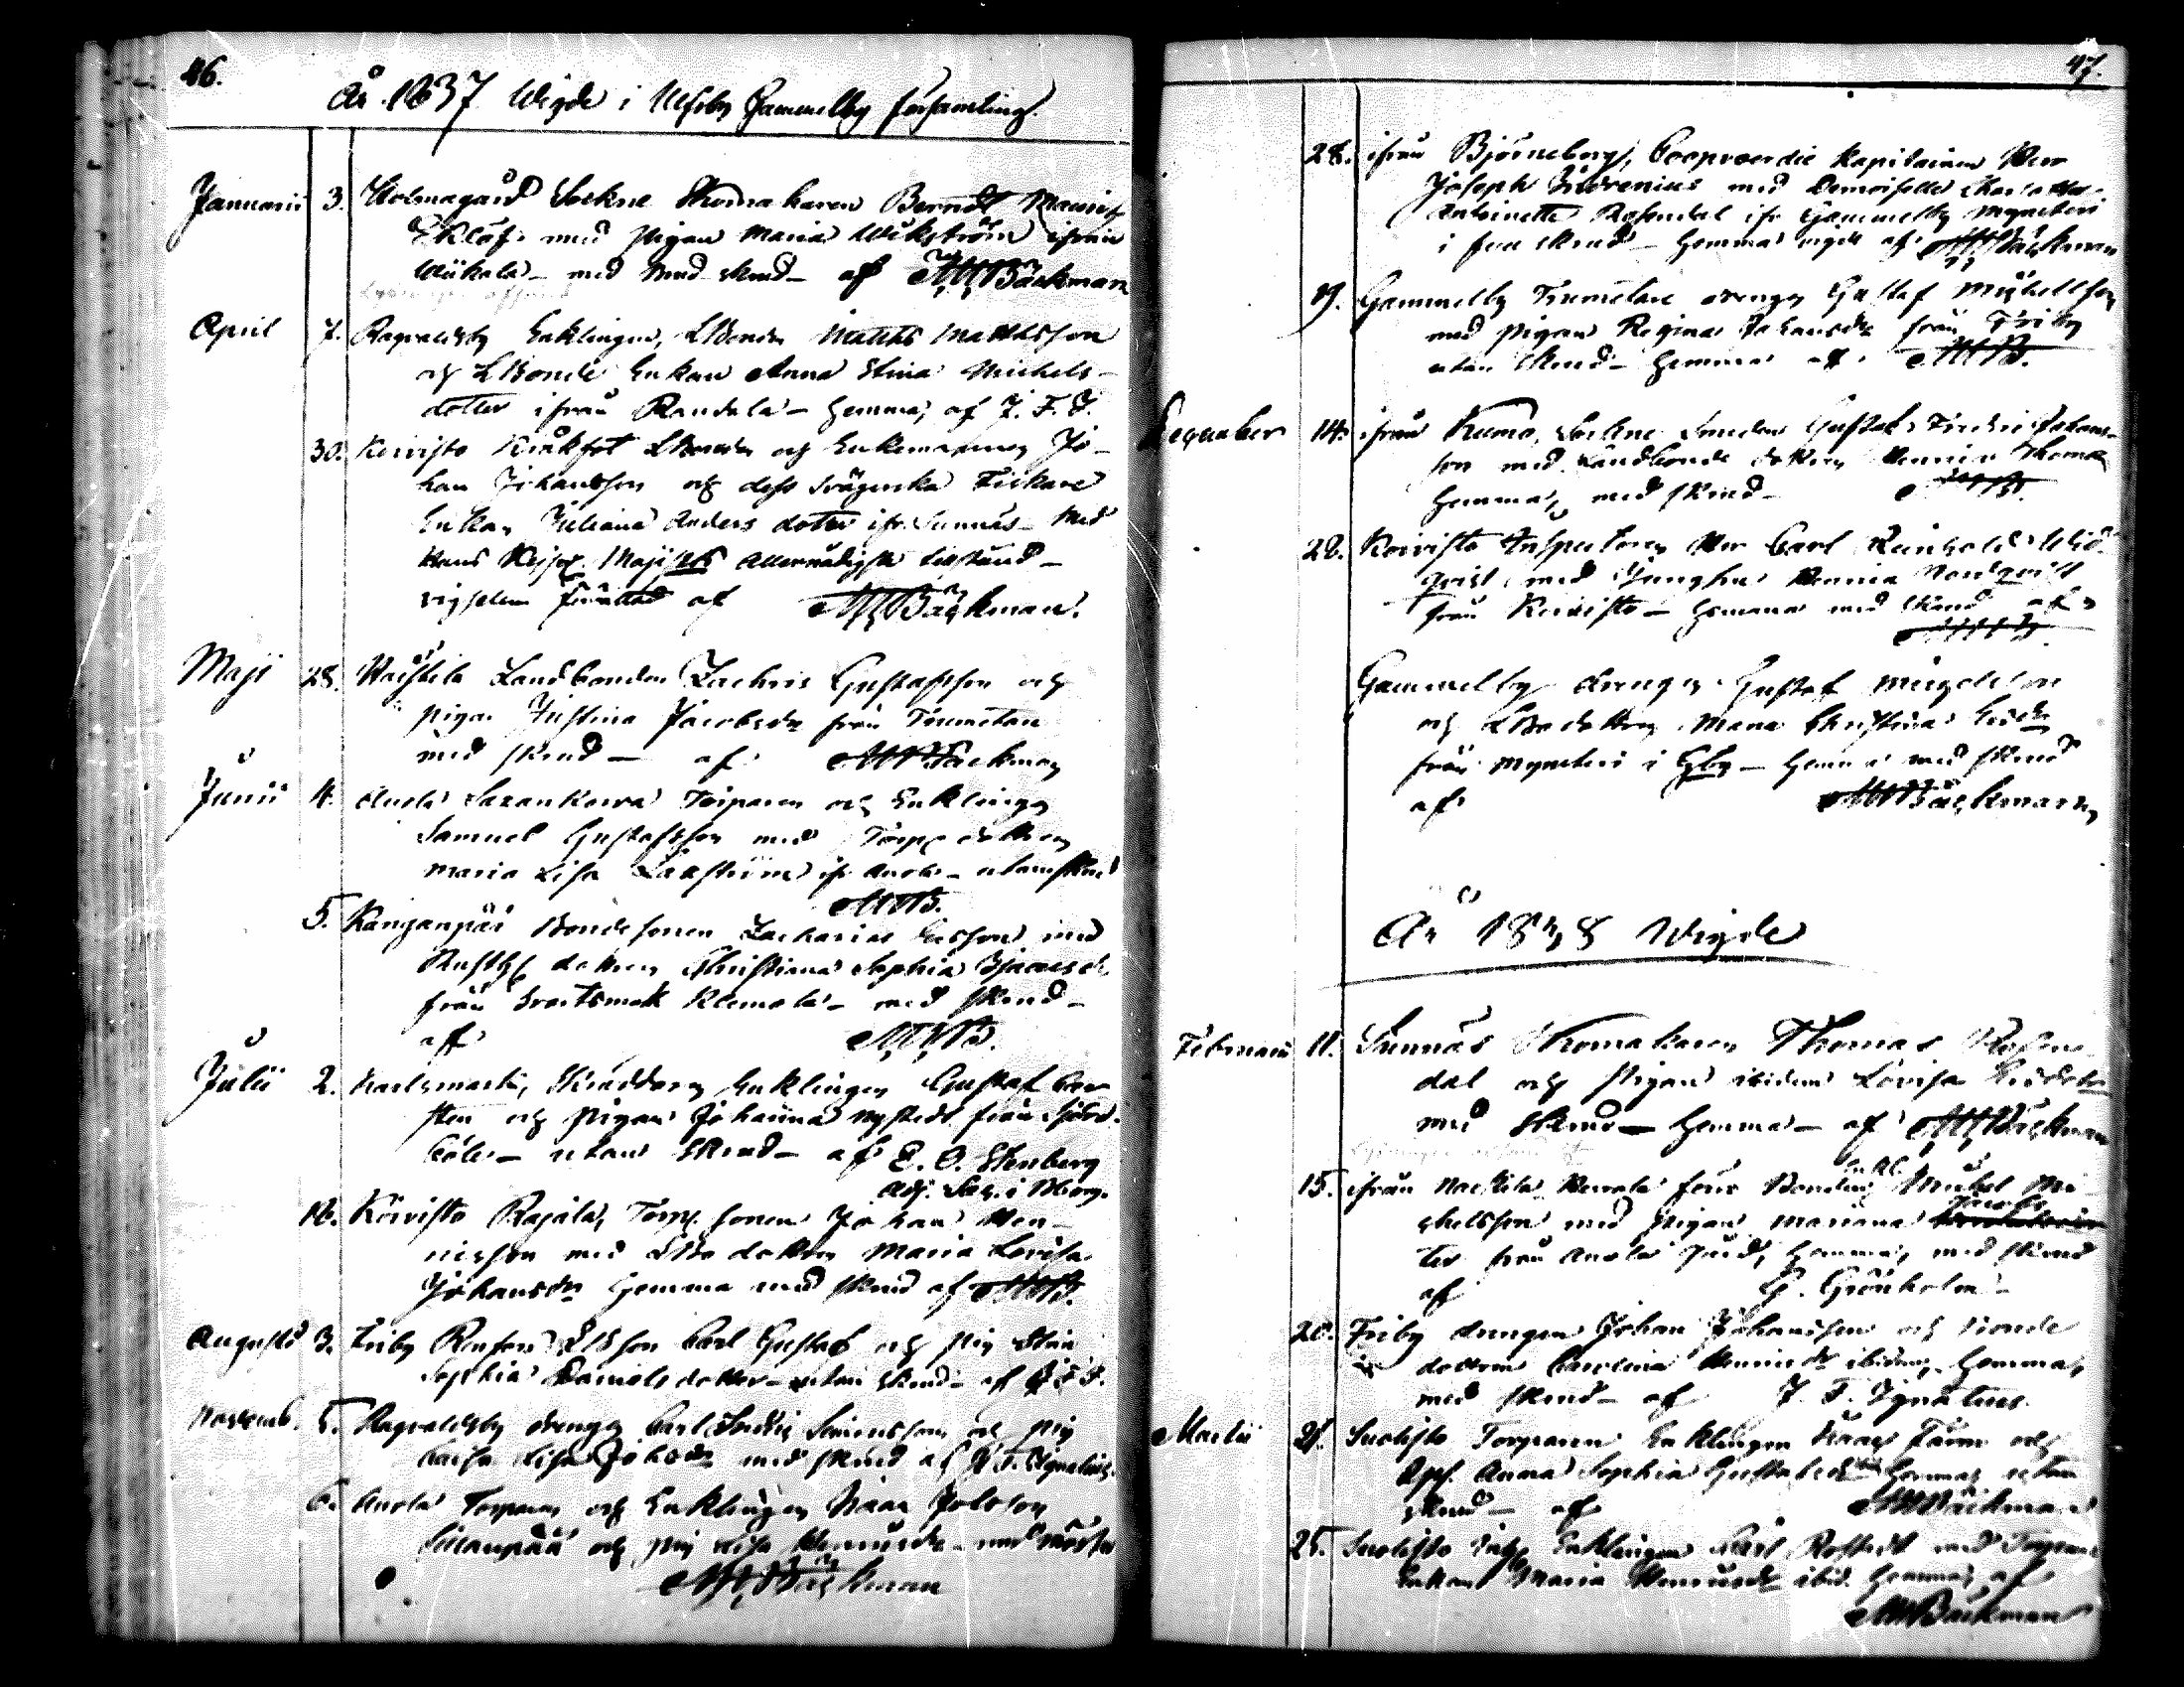 46.
År 1837 Wigde i Ulfsby Gammelby församling.
Januarii 3. Holmagård Sockne Skomakaren Berndt Mauritz
Eklöf med pigan Maria Wikström ifrån
Wiikala – med brud skrud – af MWBäckman
April 7. Ragvaldsby Enklingen, LBonden Matths Mattsson
och LBonde Enkan Anna Stina Michels-
dotter ifrån Randala – hemma, af J. F. I.
30. Koivisto Kråkfot LBonden och Enkemannen Jo-
han Johansson och dess Svägerska Fiskare
Enkan Juliana Anders dotter ifr. Sunnäs – Med
Hans Kejserl. Majts allernådigste tillstånd –
vigseln förättad af MWBäckman.
Maji 28. Landbonden Zachris Gustafsson och
pigan Justina Jacobsdr från Trumetan
med skrud – af MWBäckman
Junii 4. Anola Saxankorva Torparen och Enklingen
Samuel Gustafsson med Torpe dottren
Maria Lisa Laxström ifr Anola – utan skrud
MWB.
5. Kanganpää Bondesonen Zacharias Ersson med
Rusth. dottren Christiana Sophia
från Svartsmark Klemola – med skrud –
af MWB.
Julii 2. Karlsmark, Skräddaren Enklingen Gustaf
sten och pigan Johanna Nystedt från
böle – utan skrud – af E. O. Stenberg
Adj. Sac. i Björg.
16. Koivisto Rajala, Torp. sonen Johan Hen-
ricsson med LBo dottren Maria Lovisa
Johansdr hemma med skrud af MWB.
Augusti 3. Friby LBson Carl Gustaf och pig Stina
Sophia Daniels dotter – utan skrud – af J F I.
Novemb. 5. Ragvaldsby drengen Carl Fredric Simonsson och pig
Caisa Lisa Johsdr med skrud af J. F. Ignatius.
6. Anola Torparen och Enklingen Isaac
och pig Lisa Henricsdr – med
MWBäckman
47.
28. ifrån Björneborg, Coopvaerdie Kapitainen Herr
Joseph med Demoiselle Charlotta
Antoinetta Rosendal ifr Gammelby Myneberi
i full skrud – hemma vigde af MWBäckman
19. Gammelby Trumetare drengen Gustaf Michellsson
med pigan Regina Johansdr från Friby
utan skrud – hemma af MWB.
December 14. ifrån Kumo Sockne Smeden Gustaf Fredric Johans-
son med Landbonde dottren
hemma, med skrud – MWB.
28. Koivisto Inspectoren Herr Carl Reinhold
qvist med Jungfru Nordqvist
från Koivisto – hemma med skrud af
MWB.
Gammelby drengen Gustaf Michelsson
och LBodottren Maria Christina
från Myneberi i Gby – hemma med skrud
af MWBäckman
År 1838 Wigde
Februarii 11. Sunnäs Skomakaren Thomas Rosen-
dal och pigan ibidem Lovisa
med skrud – hemma – af MWBäckman
15. ifrån förr Bonden Enkl. Michel Mi-
chelsson med pigan Mariana Jacobs
ter från Anola gård, hemma, med skrud
af G. Grönholm –
20. Friby drengen Johan Johansson och Bonde
dottren Carolina Henricsdr ibidem, hemma,
med skrud – af J. F. Ignatius.
Martii 21. Suosisto Torparen Enklingen Isaac och
Anna Sophia Gustafsdr hemma, utan
skrud – af MWBäckman
25. Suosisto Enklingen Carl Rostedt med Torpare
Enkan Maria Henricsdr ibid. hemma, af
MWBäckman